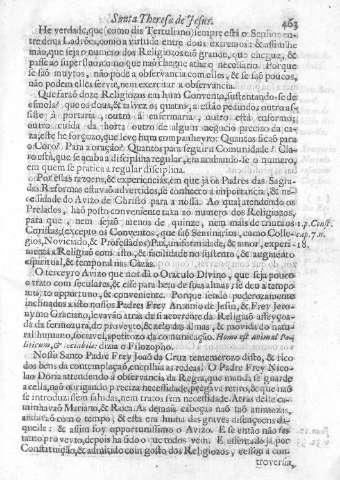 Santa Theresa de Jesus. 463
He verdade, que (como diz Tertuliano) sempre está o Senhor en-
tre dous Ladrões, como a virtude entre dous extremos: & assim he
mào, que seja o numero dos Religiosos tão grande, que chegue, &
passe ao superfluo como he mào que não chegue atàe o necessario. Porque
se são muytos, não pòde a observancia com elles, & se são poucos,
não podem elles servir, nem exercitar a observancia.
Que faráõ doze Religiosos em hum Convento, sustentando-se de
esmola? que os dous, & talvez os quatro, a estão pedindo, outro as-
siste à portaria, outro à enfermaria, outro está enfermo,
outro cuida da horta: outro de algum negocio preciso da ca-
za; este he forçoso, que leve hum companheyro: Quantos ficão para
o Coro? Para a oração? Quantos para seguir a Comunidade? Cla-
ro está, que se acaba a disciplina regular, em acabando-se o numero,
em quem se pratica a regular disciplina.
Por estas razoens, & experiencias, em que já os Padres das Sagra-
das Reformas estavão advertidos, se conheceo a importancia, & ne-
cessidade do Avizo de Christo para a nossa. Ao qual attendendo os
Prelados, hão posto conveniente taxa ao numero dos Religiosos,
para que, nem sejão menos de quinze, nem mais de trinta os 1. p. Const.
Conistas; (excepto os Conventos, que são Seminarios, como Colle- cap. 7. n.
gios, Noviciado, & Professados) Paz, uniformidade, & amor, experi- 18.
menta a Religião com isto, & facilidade no sustento, & augmento
espiritual, & temporal nas Cazas.
O terceyro Avizo que nos dà o Oraculo Divino, que seja pouco
o trato com seculares, & esse para bem de suas almas; se deu a tempo
muyto opportuno, & conveniente. Porque sendo poderozamente
inclinados a isto nossos Padres Frey Antonio de Jesus, & Frey Jero-
nymo Graciano, levavão atràs de si a corrente da Religião affeyçoa-
da da fermozura, do proveyto, & zelo das almas, & movida do natu-
ral humano, sociavel, apetitozo da comunicação. Homo est animal Po-
liticum, & sociabile: dizia o Filozofo.
Nosso Santo Padre Frey João da Cruz temerozo disto, & rico
dos bens da contemplação, encolhia as redeas: O Padre Frey Nico-
lao Doria attendendo à observancia da Regra, que manda se guarde
a cella, não obrigando precisa necessidade, prégava retiro, & que não
se introduzissem sahidas, nem tratos sem necessidade. Atràs delle ca-
minhavão Mariano, & Roca. As demais cabeças não tão animozas,
andavão com o tempo, & esta era huma das graves disençoens da-
quelle: & assim foy opportunissimo o Avizo. E se então não fez
tanto proveyto, depois ha sido o que todos vem. E assentado já por
Constituição, & admitido com gosto dos Religiosos, cessou a con-
troversia,